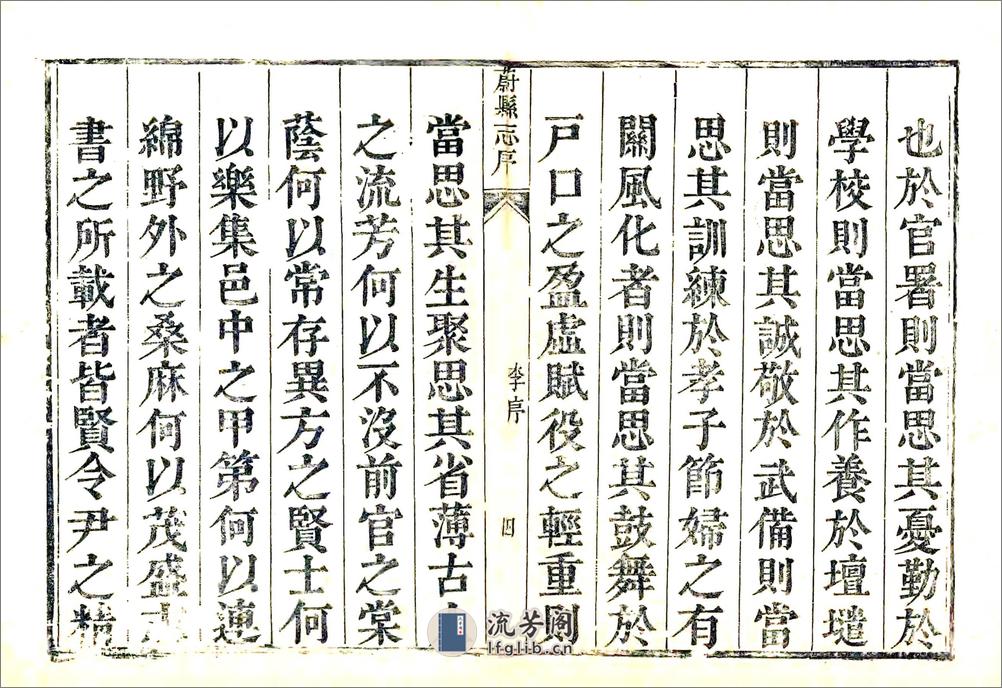 也於官署則當思其憂勤於
學校則當思其作養於壇壝
則當思其誠敬於武備則當
思其訓練於孝子節婦之有
關風化者則當思其鼓舞於
戶口之盈虛賦役之輕重則
蔚縣志序
李序
四
當思其生聚思其省薄古
之流芳何以不沒前官之棠
蔭何以常存異方之賢士何
以樂集邑中之甲第何以連
綿野外之桑麻何以茂盛
書之所載者皆賢令尹之精
流芳阁
lfglib.cn